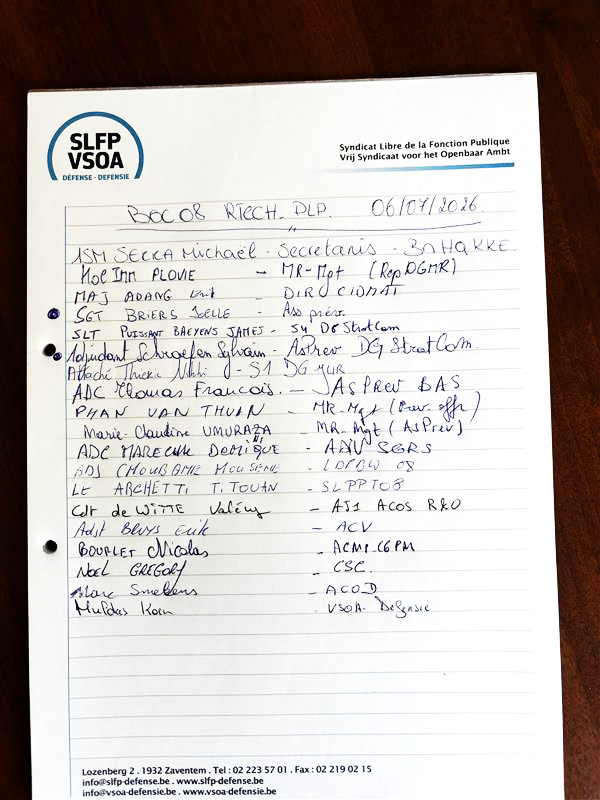 SLFP
VSOA
DÉFENSE - DEFENSIE
Syndicat Libre de la Fonction Publique
Vrij Syndicaat voor het Openbaar Ambt
BOC 08 RTECH. DLP. 06/07/2026.
1SM SERRA Michaël - Secretaris - BAHQKKE.
PLOVIE - MR-Mgt (Rep DGMR)
MAJ ADANG - DIRO CIDMAT
SGT BRIERS JOELLE - Ass prév.
SLT PUISSANT BAEYENS JAMES - S4 DG StratCom
Adjudant Schraefen Sylvain - AsPrev DG StratCom.
Attaché - S1 DG JUR
ADC Thomas Francois. - ASPREV BAS
PHAN VAN THUAN - MR-Mgt (Prev. offr)
Marie-Claudine UMURAZA - MR-Mgt (AsPrev)
ADC MARECHAL - SGRS
ADJ CHOUBANE - 08
LT ARCHETTI TITOUAN - SLPPT08
Cdt de WITTE Valéry - AJ1 ACOS R&O
Adjt BRUYS Erik - ACV
BOURLET Nicolas - ACMP-CGPM
NOEL GREGORY - CSC.
Marc Smekens - ACOD
Muldas Koen - VSOA Defensie
Lozenberg 2 . 1932 Zaventem . Tel : 02 223 57 01 . Fax : 02 219 02 15
info@slfp-defense.be . www.slfp-defense.be
info@vsoa-defensie.be . www.vsoa-defensie.be